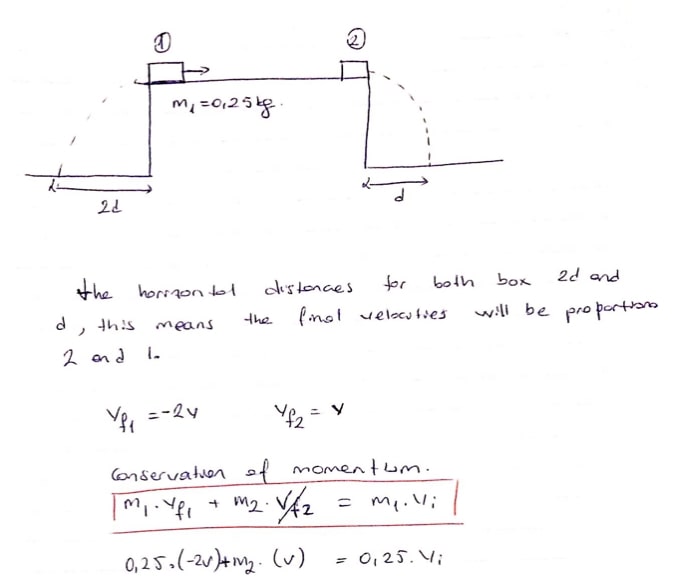 ① ②
m₁ = 0,25 kg.
2d
d
the horizontal distances for both box 2d and
d, this means the final velocities will be proportions
2 and 1.
Vf₁ = -2v Vf₂ = v
Conservation of momentum.
m₁.Vf₁ + m₂.Vf₂ = m₁.Vi
0,25.(-2v)+m₂.(v) = 0,25.Vi